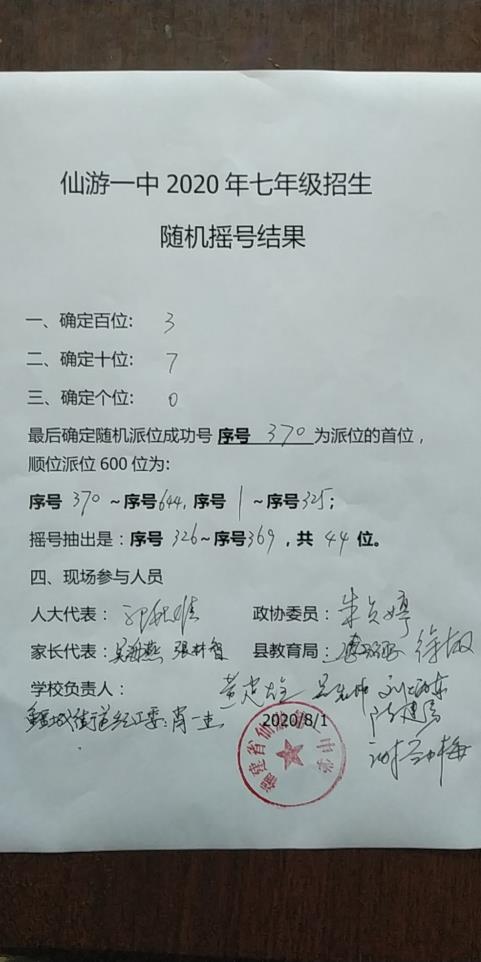 仙游一中 2020 年七年级招生
随机摇号结果
一、确定百位: 3
二、确定十位: 7
三、确定个位: 0
最后确定随机派位成功号 序号 370 为派位的首位，
顺位派位 600 位为:
序号 370 ~序号644, 序号 1 ~序号325;
摇号抽出是：序号 326~序号369 ，共 44 位。
四、现场参与人员
人大代表： 政协委员：朱贞婷
家长代表: 吴海燕 张材智 县教育局: 徐
学校负责人： 黄忠
街道纪工委: 肖一
2020/8/1
福建省仙游第一中学